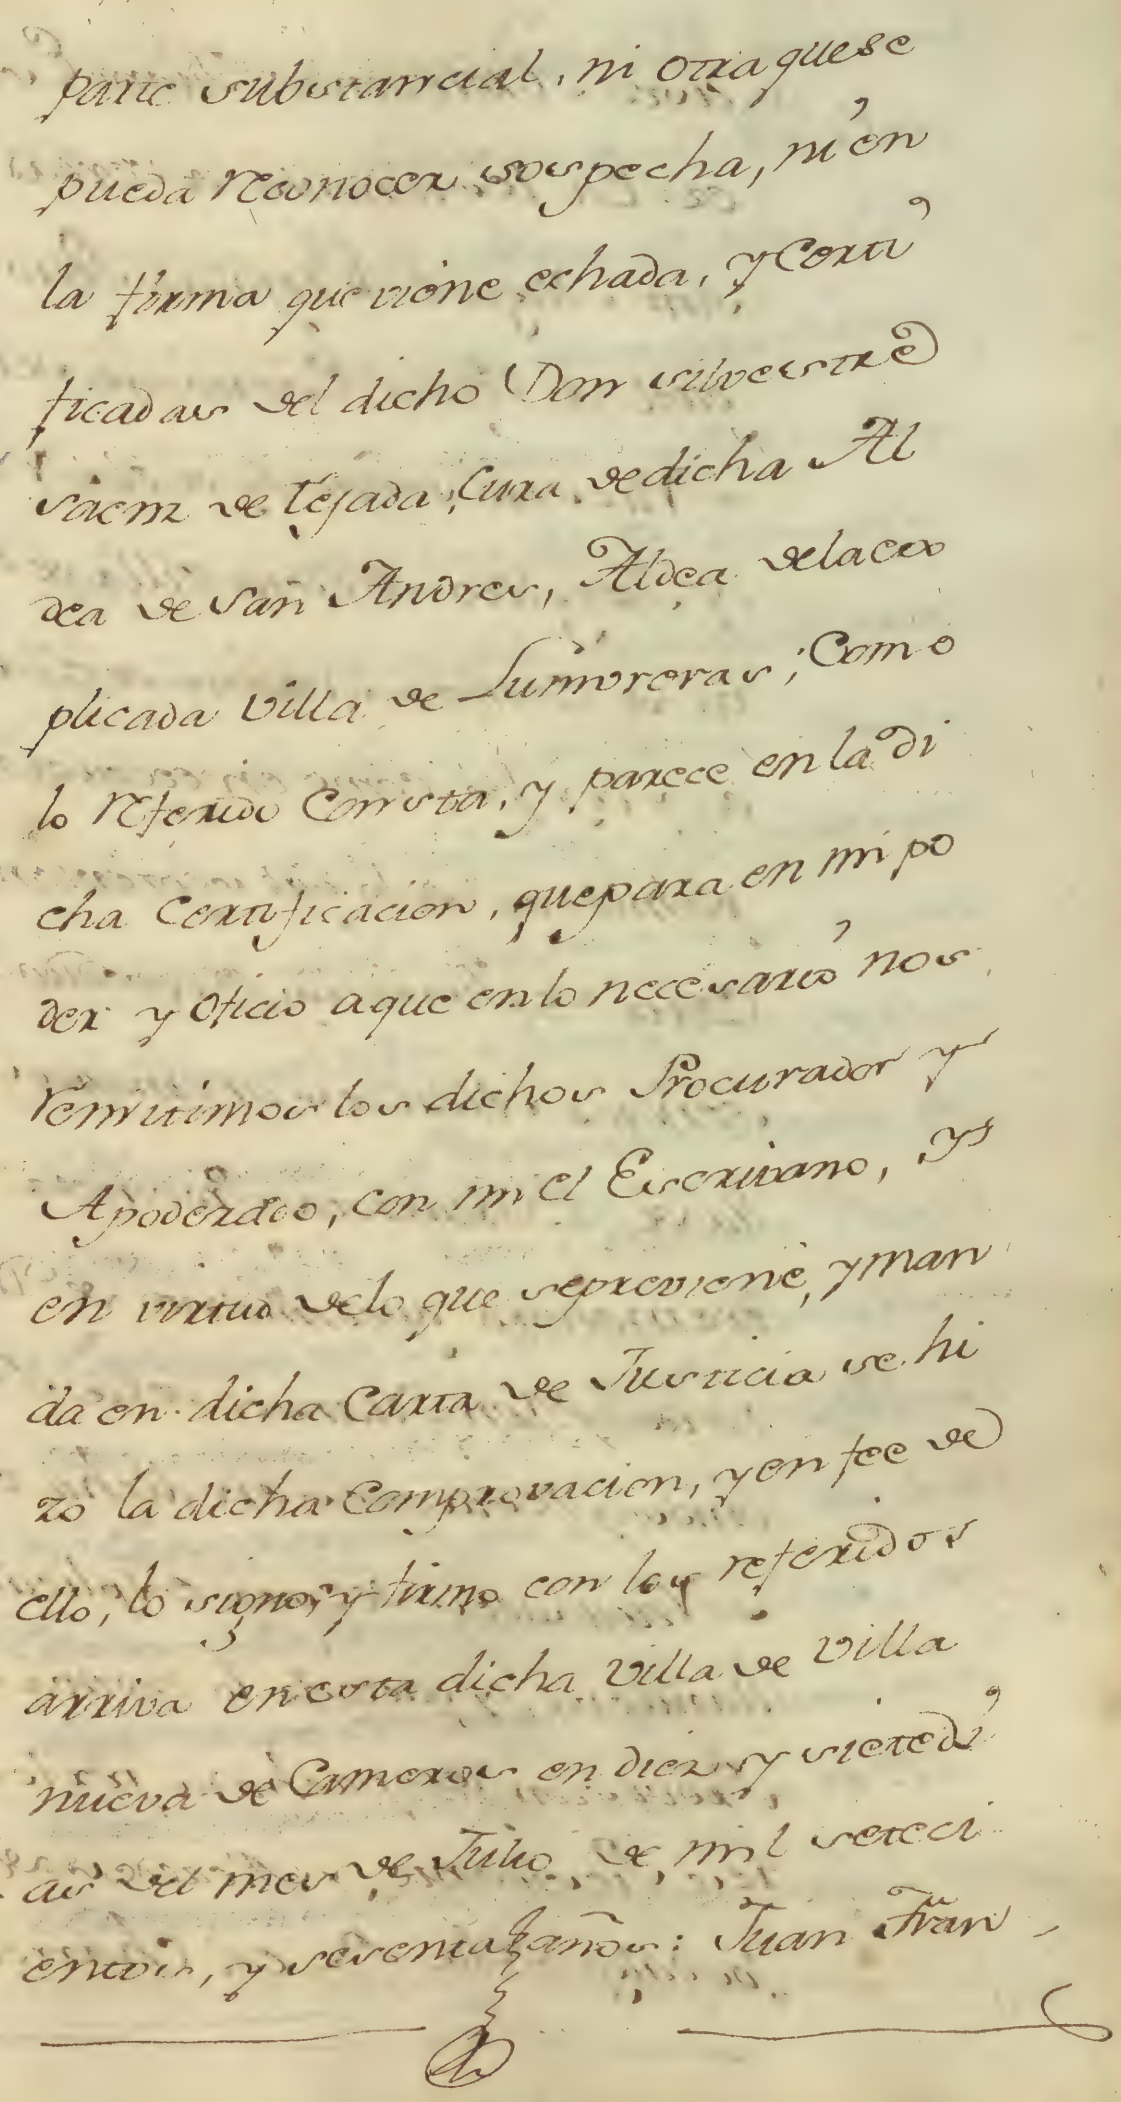 parte substancial, ni otra que se
pueda reconocer sospecha, ni en
la firma que viene echada, y Certi
ficadas del dicho Don Silvestre
Saenz de Tejada, Cura de dicha Al
dea de San Andres, Aldea de la ex
plicada Villa de Lumbreras; Como
lo referido Consta, y parece en la di
cha Certificacion, que para en mi po
der y oficio a que en lo necesario nos
remitimos los dichos Procurador y
Apoderado, con mi el Escrivano, y
en virtud de lo que se previene, y man
da en dicha Carta de Justicia se hi
zo la dicha Comprovacion, y en fee de
ello, lo signo, y firmo con los referidos
arriva en esta dicha Villa de Villa
nueva de Cameros en diez y siete di
as del mes de Julio de mil seteci
entos, y sesenta años: Juan Fran